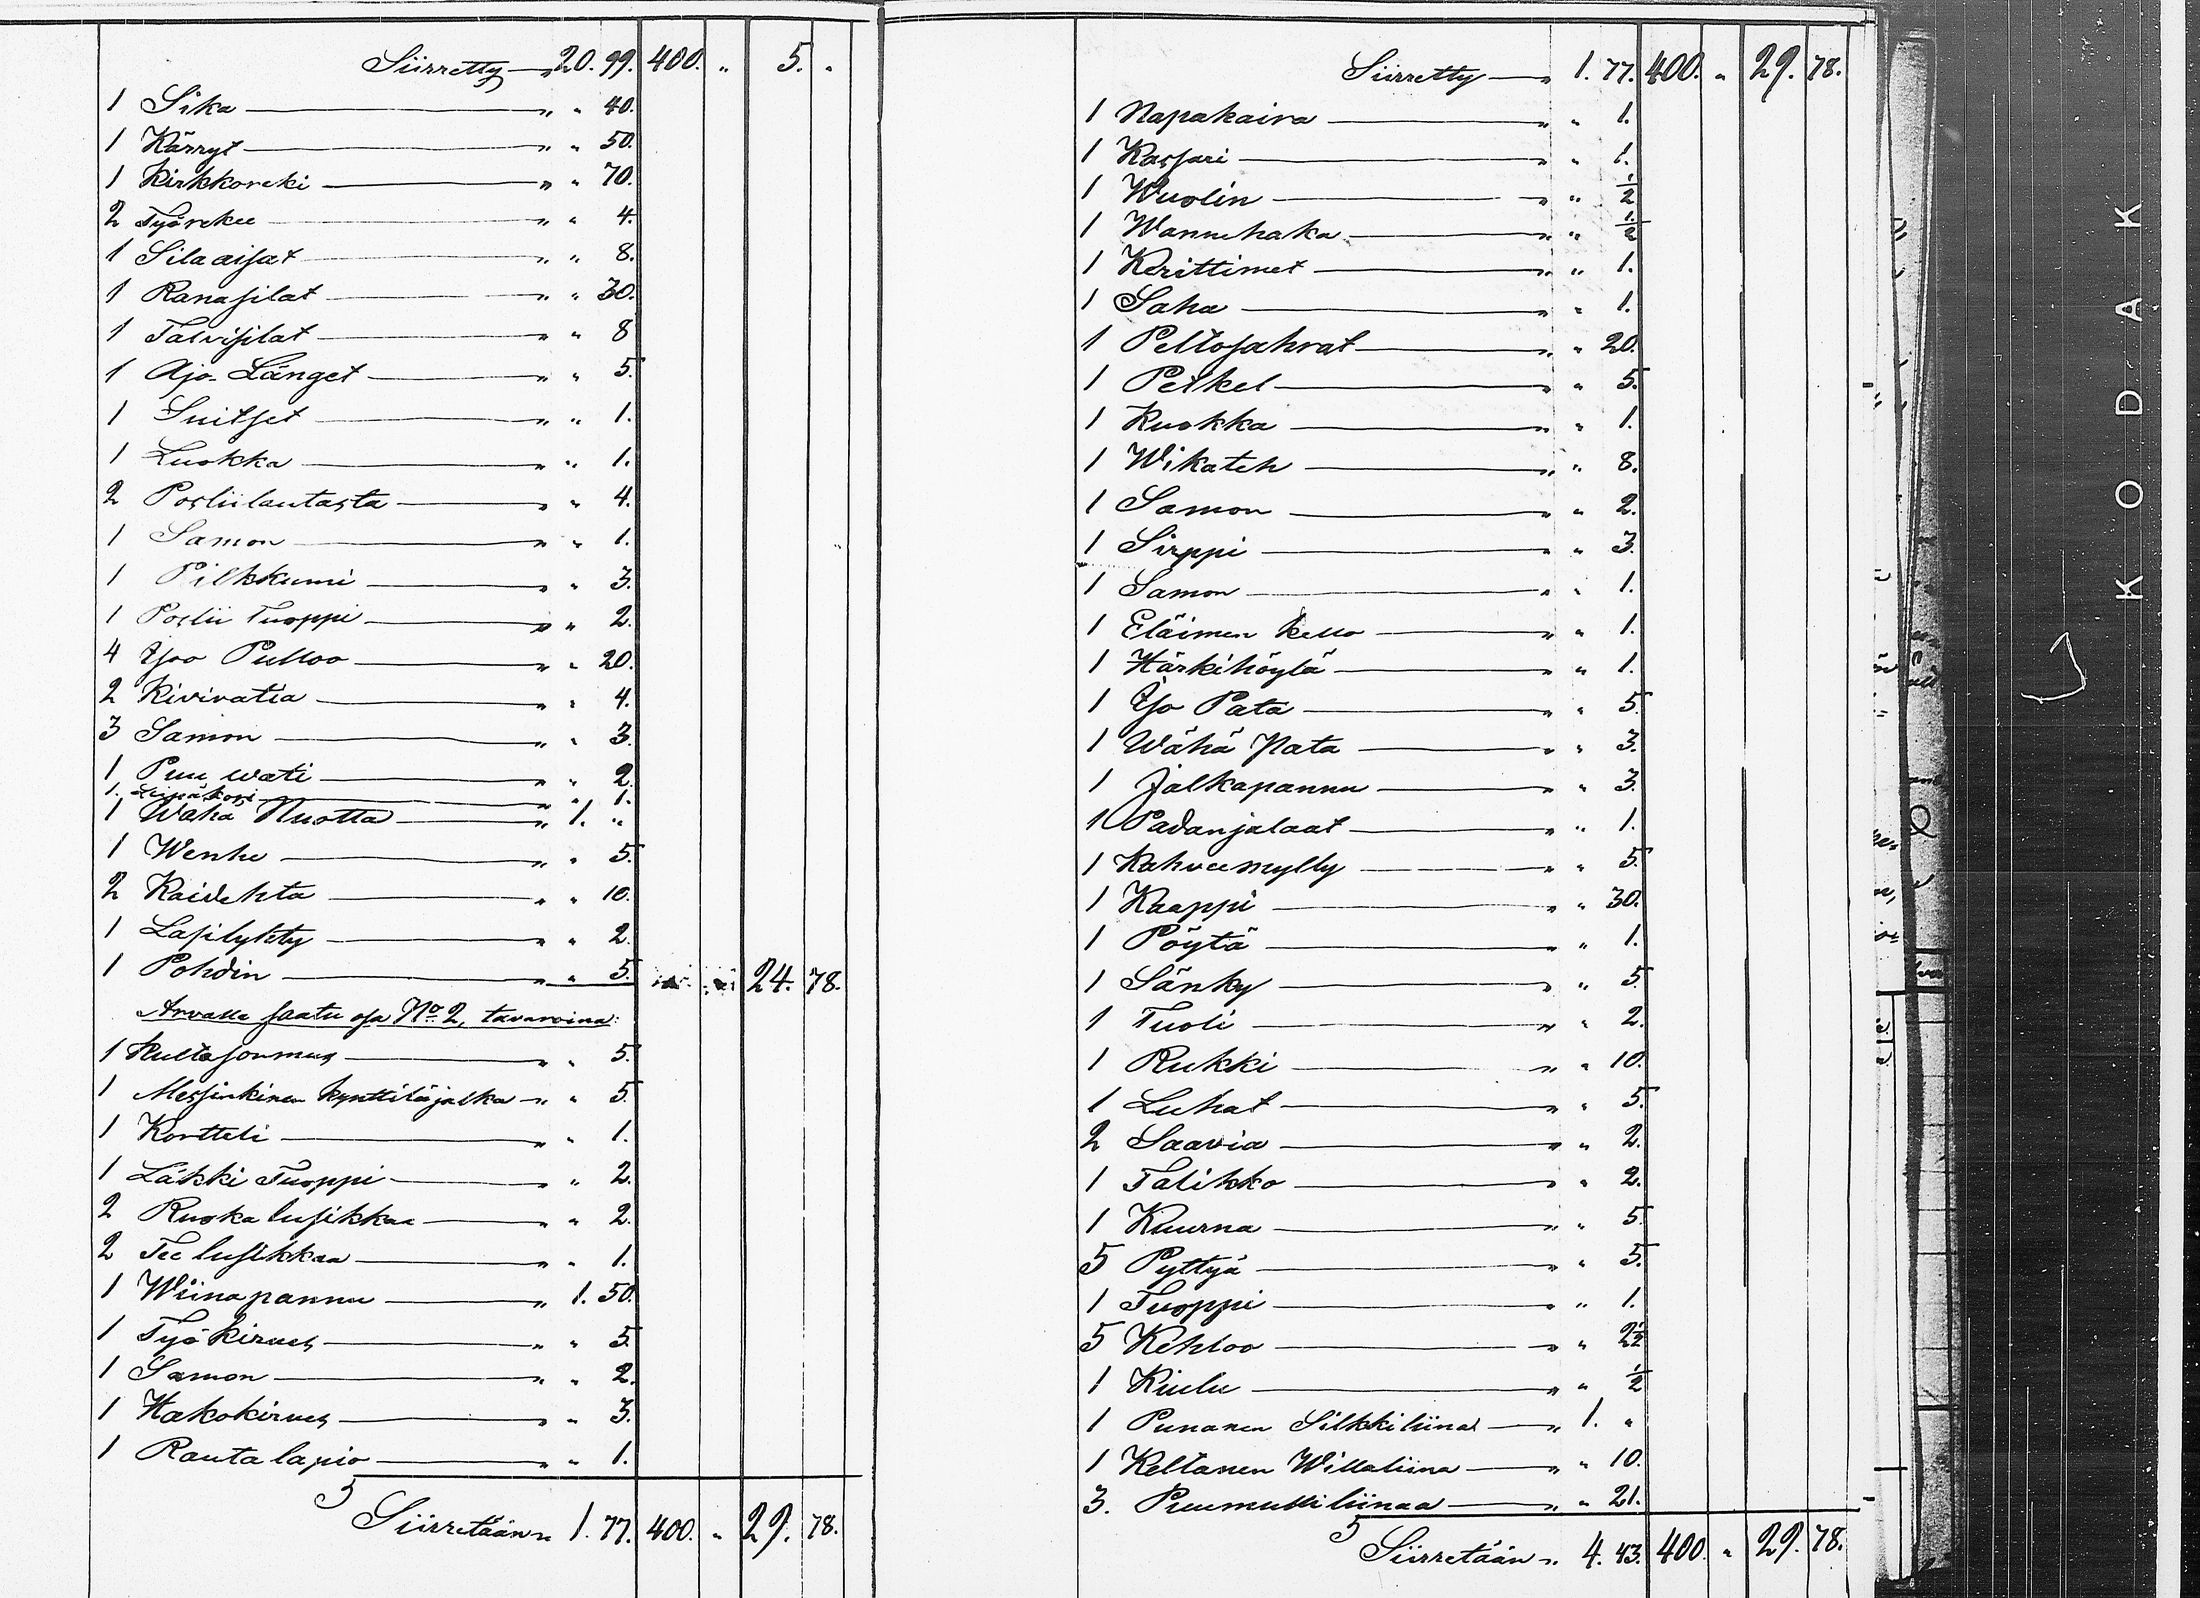 Siirretty — „ 20. 99. 400. „ 5. „
1 Sika — „ „ 40.
1 Kärryt — „ „ 50.
1 Kirkkoreki — „ „ 70.
2 Työrekee — „ „ 4.
1 Silaaisat — „ „ 8.
1 Ranasilat — „ „ 30.
1 Talvisilat — „ „ 8
1 Ajo-Länget — „ „ 5.
1 Suitset — „ „ 1.
1 Luokka — „ „ 1.
2 Posliilautasta — „ „ 4.
1 Samon — „ „ 1.
1 Pilkkumi — „ „ 3.
1 Poslii Tuoppi — „ „ 2.
4 Isoo Pulloo — „ „ 20.
2 Kivivatia — „ „ 4.
3 Samon — „ „ 3.
1 Puu wati — „ „ 2.
1. Leipäkori — „ „ 1.
1 Wähä Nuotta — „ 1. „
1 Wenhe — „ „ 5.
2 Kaidehta — „ „ 10.
1 Lasilykty — „ „ 2.
1 Pohdin — „ „ 5. 24. 78.
Arvalla saatu osa No 2, tavaroina:
1 Kultasormus — „ „ 5.
1 Messinkinen kynttiläjalka — „ „ 5.
1 Kortteli — „ „ 1.
1 Läkki Tuoppi — „ „ 2.
2 Ruoka lusikkaa — „ „ 2.
2 Tee lusikkaa — „ „ 1.
1 Wiinapannu — „ 1. 50.
1 Työ kirves — „ „ 5.
1 Samon — „ „ 2.
1 Hakokirves — „ „ 3.
1 Rauta lapio — „ „ 1.
Siirretään „ 1. 77. 400. „ 29. 78.
Siirretty — „ 1. 77. 400. „ 29. 78.
1 Napakaira — „ „ 1.
1 Kassari — „ „ 1.
1 Wuolin — „ „ ½
1 Wannehaka — „ „ ½
1 Kerittimet — „ „ 1.
1 Saha — „ „ 1.
1 Peltosahrat — „ „ 20.
1 Petkel — „ „ 5.
1 Kuokka — „ „ 1.
1 Wikateh — „ „ 8.
1 Samon — „ „ 2.
1 Sirppi — „ „ 3.
1 Samon — „ „ 1.
1 Eläimen kello — „ „ 1.
1 Härkihöylä — „ „ 1.
1 Iso Pata — „ „ 5.
1 Wähä Pata — „ „ 3.
1 Jalkapannu — „ „ 3.
1 Padanjalaat — „ „ 1.
1 Kahveemylly — „ „ 5.
1 Kaappi — „ „ 30.
1 Pöytä — „ 1.
1 Sänky — „ „ 5.
1 Tuoli — „ „ 2.
1 Rukki — „ „ 10.
1 Luhat — „ „ 5.
2 Saavia — „ „ 2.
1 Talikko — „ „ 2.
1 Kuurna — „ „ 5.
5 Pyttyä — „ „ 5.
1 Tuoppi — „ „ 1.
5 Kehloo — „ „ 2½
1 Kiulu — „ „ ½
1 Punanen Silkkiliina — „ 1. „
1 Keltanen Willaliina — „ „ 10.
3. Puumulliliinaa — „ „ 21.
Siirretään „ 4. 43. 400. „ 29. 78.
KODAK